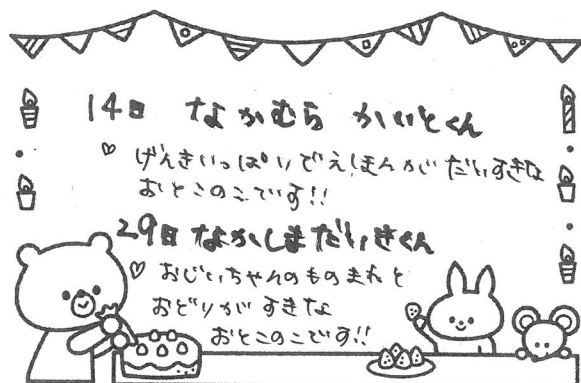 14日 なかむら かいとくん
♡ げんきいっぱいでえほんがだいすきな
おとこのこです!!
29日 なかしまだいきくん
♡ おじいちゃんのものまねと
おどりがすきな
おとこのこです!!